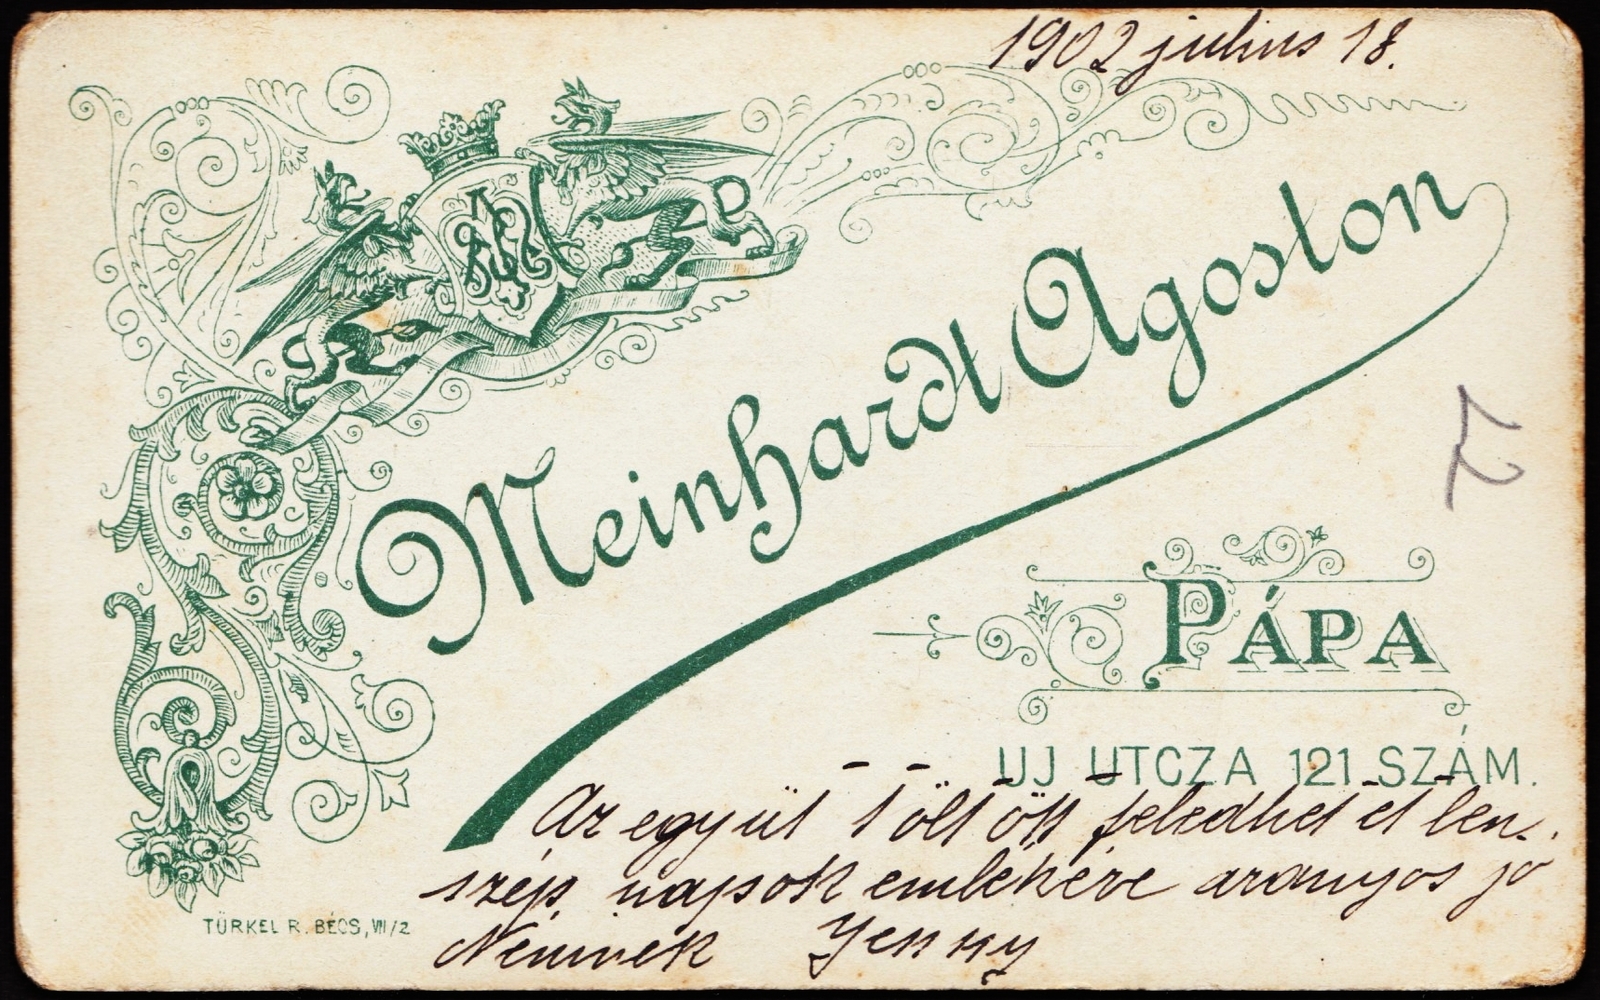 1902 julius 18.
Meinhardt Agoston
PÁPA
UJ UTCZA 121 SZÁM.
Az együtt töltött feledhetetlen
szép napok emlékére aranyos jó
Nénivek Jenny
TÜRKEL R. BÉCS, VII/2